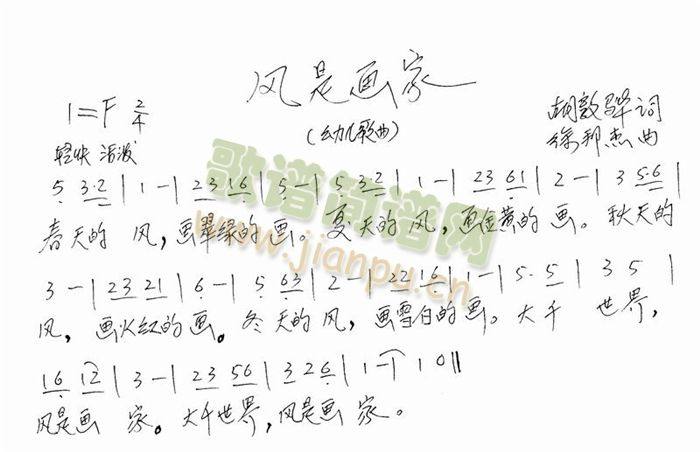 风是画家
1=F 2/4
(幼儿歌曲)
胡敦骅 词
轻快 活泼
徐邦杰 曲
5 3·2 | 1 - | 23 16 | 5 - | 5 32 | 1 - | 23 61 | 2 - | 3 5·6 |
春天的 风, 画翠绿的 画。 夏天的 风, 画金黄的 画。 秋天的
3 - | 23 21 | 6 - | 5 63 | 2 - | 22 16 | 1 - | 5· 5 | 3 5 |
风, 画火红的 画。 冬天的 风, 画雪白的 画。 大千 世界,
16 12 | 3 - | 23 56 | 326 | 1 - | 1 0 ‖
风是画 家。 大千世界, 风是画 家。
歌谱简谱网
www.jianpu.cn